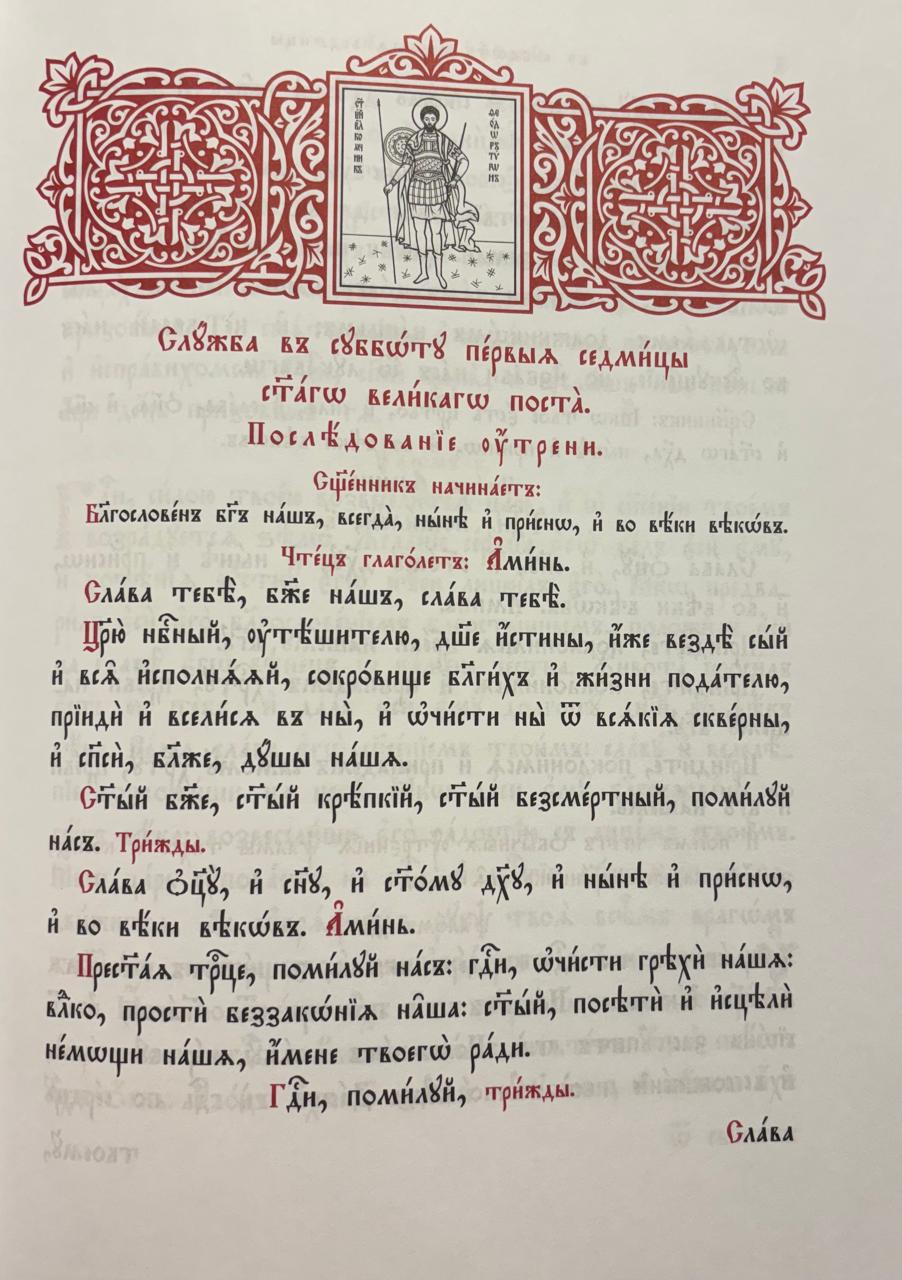 ст҃ы́й великомч҃никъ
ѳеодѡръ тѵрѡнъ
Слꙋ́жба въ сꙋббѡ́тꙋ пе́рвыѧ седми́цы
ст҃а́гѡ вели́кагѡ поста̀.
Послѣ́дованїе оу҆́трени.
Сщ҃е́нникъ начина́етъ:
Бл҃гослове́нъ бг҃ъ на́шъ, всегда̀, ны́нѣ и҆ при́снѡ, и҆ во вѣ́ки вѣкѡ́въ.
Чте́цъ глаго́летъ: А҆ми́нь.
Сла́ва тебѣ̀, бж҃е на́шъ, сла́ва тебѣ̀.
Цр҃ю̀ нб҇ный, оу҆тѣ́шителю, дш҃е и҆́стины, и҆́же вездѣ̀ сы́й
и҆ всѧ̑ и҆сполнѧ́ѧй, сокро́вище бл҃ги́хъ и҆ жи́зни пода́телю,
прїидѝ и҆ всели́сѧ въ ны̀, и҆ ѡ҆чи́сти ны̀ ѿ всѧ́кїѧ скве́рны,
и҆ сп҃сѝ, бл҃же, дꙋ́шы на́шѧ.
Ст҃ы́й бж҃е, ст҃ы́й крѣ́пкїй, ст҃ы́й безсме́ртный, поми́лꙋй
на́съ. Три́жды.
Сла́ва ѻ҆ц҃ꙋ̀, и҆ сн҃ꙋ, и҆ ст҃о́мꙋ дх҃ꙋ, и҆ ны́нѣ и҆ при́снѡ,
и҆ во вѣ́ки вѣкѡ́въ. А҆ми́нь.
Прест҃а́ѧ трⷪ҇це, поми́лꙋй на́съ: гдⷭ҇и, ѡ҆чи́сти грѣхѝ на́шѧ:
влⷣко, простѝ беззакѡ́нїѧ на̑ша: ст҃ы́й, посѣтѝ и҆ и҆сцѣлѝ
не́мѡщи на́шѧ, и҆́мене твоегѡ̀ ра́ди.
Гдⷭ҇и, поми́лꙋй, три́жды.
Сла́ва